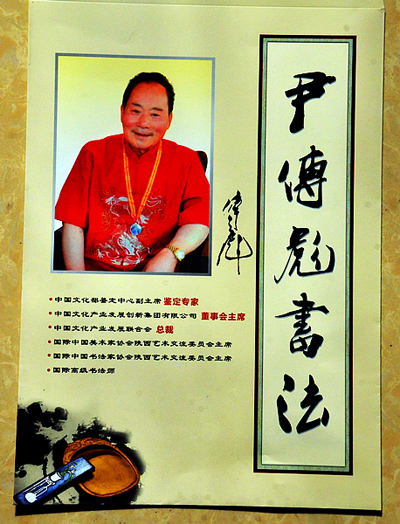 尹傳彪書法
傳彪
•中国文化部鉴定中心副主席 鉴定专家
•中国文化产业发展创新集团有限公司 董事会主席
•中国文化产业发展联合会 总裁
•国际中国美术家协会陕西艺术交流委员会主席
•国际中国书法家协会陕西艺术交流委员会主席
•国际高级书法师